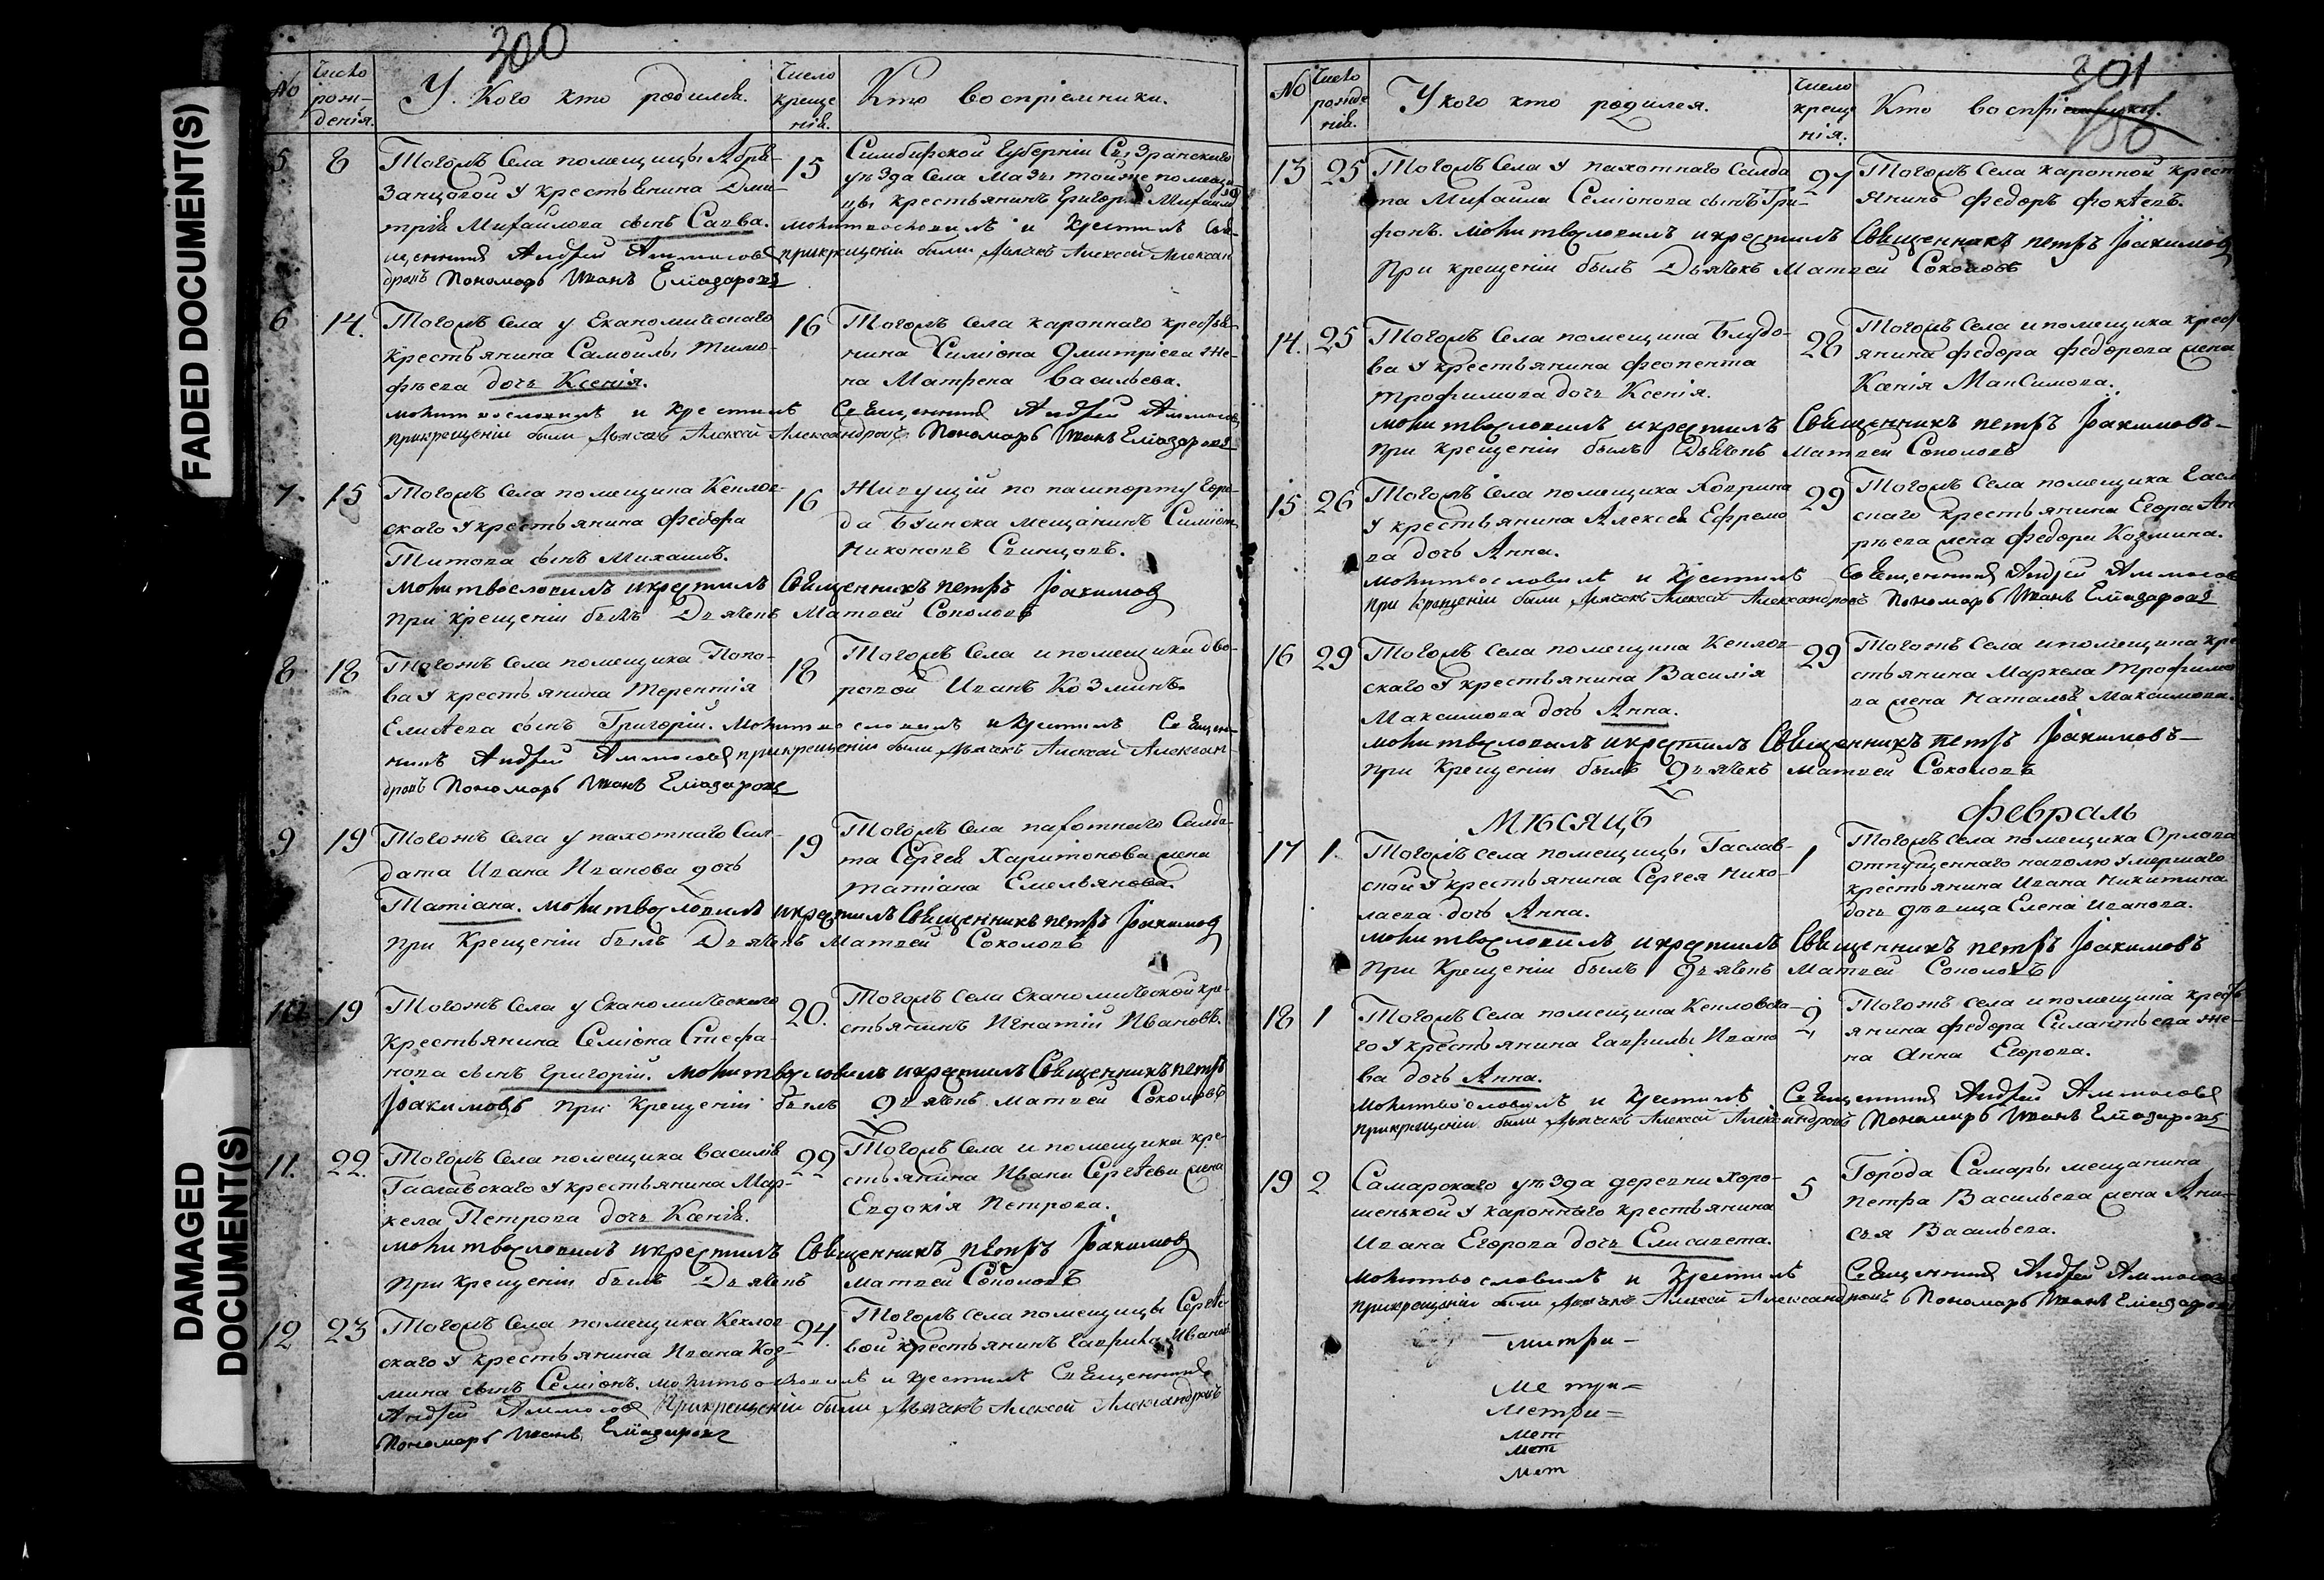 FADED DOCUMENT(S)
DAMAGED
DOCUMENT(S)
300
№
Число
рож-
денія.
У Кого кто родился.
Число
креще
нія.
Кто воспріемники.
5 8
Тогожъ Села помещицы Абря-
занцовой у крестьянина Дми-
трія Михайлова сынъ Савва.
15
Симбирской Губерніи Сызранскаго
уѣзда Села Мазы тойже помещи
цы крестьянинъ Григорій Михайлов
молитвословилъ и Крестилъ Свя-
щенникъ Андрей Аммосовъ прикрещеніи были Дьячекъ Алексей Алексан
дровъ Пономарь Иванъ Елиазаровъ
6 14.
Тогожъ Села у Економическаго
крестьянина Самойлы Тимо-
фѣева дочь Ксенія.
16
Тогожъ Села каронного крестья-
нина Симіона Дмитріева же-
на Матрена Васильева.
молитвословилъ и Крестилъ Священникъ Андрей Аммосовъ
прикрещеніи были Дьячекъ Алексей Александровъ Пономарь Иванъ Елиазаровъ
7 15
Тогожъ Села помещика Кехлов-
скаго у крестьянина Федора
Титова сынъ Михаилъ.
16
Живущій по пашпорту Горо-
да Буинска мещанинъ Симіон
Никоновъ Свинцовъ.
молитвословилъ икрестилъ Священникъ петръ Іоакимовъ
при крещеніи былъ Дьячекъ Матвей Соколовъ
8 18
Тогожъ Села помещика Попо-
ва у крестьянина Терентія
Елисѣева сынъ Григорій.
18
Тогожъ Села и помещика дво-
ровой Иванъ Козминъ.
Молитвословилъ и Крестилъ Священ-
никъ Андрей Аммосовъ прикрещеніи были Дьячекъ Алексей Алексан-
дровъ Пономарь Иванъ Елиазаровъ
9 19
Тогожъ Села у пахотнаго Сол-
дата Ивана Иванова дочь
Татіана.
19
Тогожъ Села пахотнаго Салда-
та Сергея Харитонова жена
Татіана Емельянова.
молитвословилъ икрестилъ Священникъ петръ Іоакимовъ
при Крещеніи былъ Дьячекъ Матвей Соколовъ
10 19
Тогожъ Села у Економическаго
крестьянина Семіона Стефа-
нова сынъ Григорій.
20.
Тогожъ Села Економической кре-
стьянинъ Игнатій Ивановъ.
молитвословилъ икрестилъ Священникъ петръ
Іоакимовъ при Крещеніи былъ Дьячекъ Матвей Соколовъ
11. 22.
Тогожъ Села помещика Василія
Гаславскаго у крестьянина Мар-
кела Петрова дочь Ксенія.
22
Тогожъ Села и помещика кре-
стьянина Ивана Сергѣева жена
Евдокія Петрова.
молитвословилъ икрестилъ Священникъ петръ Іоакимовъ
При крещеніи былъ Дьячекъ матвей Соколовъ
12 23
Тогожъ Села помещика Кехлов-
скаго у крестьянина Ивана Коз-
мина сынъ Семіонъ.
24.
Тогожъ Села помещицы Сергѣе-
вой крестьянинъ Гаврила Иванов
молитвословилъ и крестилъ Священникъ
Андрей Аммосовъ Прикрещеніи были Дьячекъ Алексей Александровъ
Пономарь Иванъ Елиазаровъ
301
№
Число
рожде
нія.
У кого кто родился.
Число
креще
нія.
Кто воспріемники.
13 25
Тогожъ Села у пахотнаго Салда
та Михаила Семіонова сынъ Три-
фонъ.
27
Тогожъ Села каронной крест
янинъ Федоръ Фоктевъ.
молитвословилъ икрестилъ Священникъ петръ Іоакимовъ
При крещеніи былъ Дьячекъ Матвей Соколовъ
14. 25
Тогожъ Села помещика Блудо-
ва у крестьянина Феопента
Трофимова дочь Ксенія.
28
Тогожъ Села и помещика крест
янина Федора Федорова жена
Ксенія Максимова.
молитвословилъ икрестилъ Священникъ петръ Іоакимовъ
при крещеніи былъ Дьячекъ Матвей Соколовъ
15 26
Тогожъ Села помещика Ховрина
у крестьянина Алексея Ефремо
ва дочь Анна.
29
Тогожъ Села помещика Гасл
скаго крестьянина Егора Ан
рѣева жена Федора Козмина.
молитвословилъ и Крестилъ Священникъ Андрей Аммосовъ
при крещеніи были Дьячекъ Алексей Александровъ Пономарь Иванъ Елиазаровъ
16 29
Тогожъ Села помещика Кехлов-
скаго у крестьянина Василія
Максимова дочь Анна.
29
Тогожъ Села и помещика кре
стьянина Маркела Трофимо
ва жена Наталья Максимова.
молитвословилъ икрестилъ Священникъ петръ Іоакимовъ
при Крещеніи былъ Дьячекъ Матвей Соколовъ
Мѣсяцъ Февраль
17 1.
Тогожъ села помещицы Гаслав-
ской у крестьянина Сергея Нико-
лаева дочь Анна.
1
Тогожъ Села помещика Орлова
отпущеннаго наволю умершаго
крестьянина Ивана Никитина
дочь дѣвица Елена Иванова.
молитвословилъ икрестилъ Священникъ петръ Іоакимовъ
при Крещеніи былъ Дьячекъ Матвей Соколовъ
18 1
Тогожъ Села помещика Кехловска-
го у крестьянина Гаврилы Ивано
ва дочь Анна.
2
Тогожъ села и помещика крестъ
янина Федора Силантьева же-
на Анна Егорова.
молитвословилъ и Крестилъ Священникъ Андрей Аммосовъ
прикрещеніи были Дьячекъ Алексей Александровъ Пономарь Иванъ Елиазаровъ
19 2
Самарскаго уѣзда деревни Хоро-
шенькой у каронного крестьянина
Ивана Егорова дочь Елисавета.
5
Города Самары мещанина
Петра Васильева жена Ани-
сья Васильева.
Молитвословилъ и Крестилъ Священникъ Андрей Аммосовъ
прикрещеніи были Дьячекъ Алексей Александровъ Пономарь Иванъ Елиазаровъ
митри-
Метри=
Мет
мет
мет